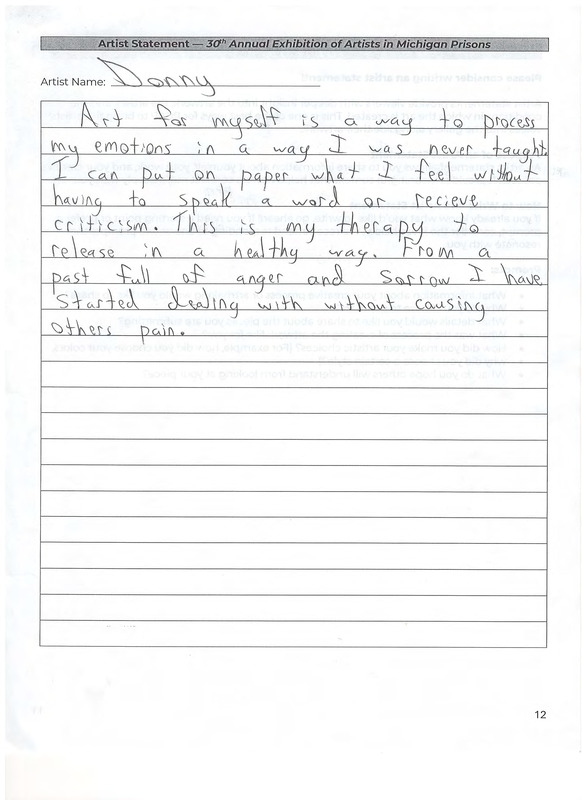 Artist Statement — 30th Annual Exhibition of Artists in Michigan Prisons
Artist Name: Donny
Art for myself is a way to process
my emotions in a way I was never taught.
I can put on paper what I feel without
having to speak a word or recieve
criticism. This is my therapy to
release in a healthy way. From a
past full of anger and sorrow I have
started dealing with without causing
others pain.
12